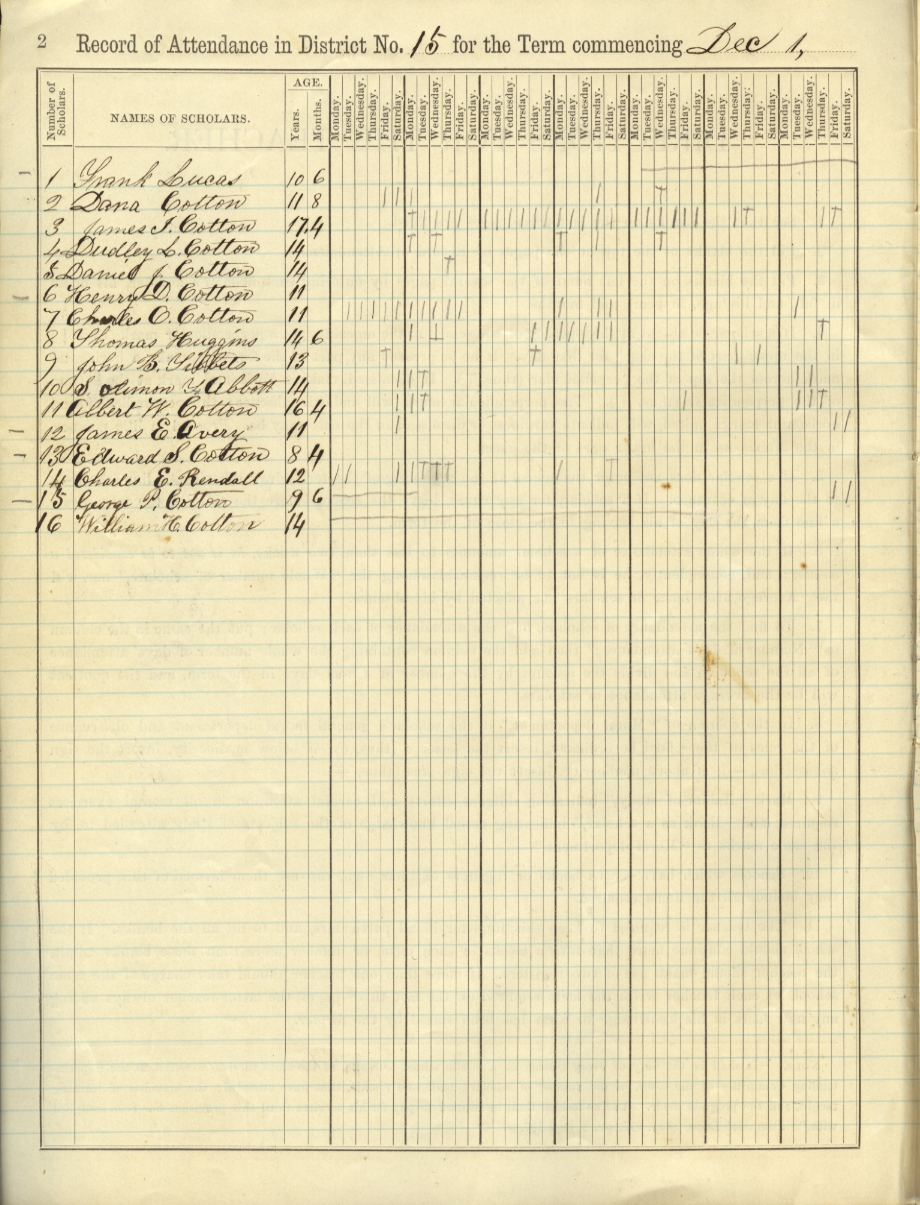 2 Record of Attendance in District No. 15 for the Term commencing Dec 1,
Number of Scholars. NAMES OF SCHOLARS. AGE. Years. Months. Monday. Tuesday. Wednesday. Thursday. Friday. Saturday. Monday. Tuesday. Wednesday. Thursday. Friday. Saturday. Monday. Tuesday. Wednesday. Thursday. Friday. Saturday. Monday. Tuesday. Wednesday. Thursday. Friday. Saturday. Monday. Tuesday. Wednesday. Thursday. Friday. Saturday. Monday. Tuesday. Wednesday. Thursday. Friday. Saturday. Monday. Tuesday. Wednesday. Thursday. Friday. Saturday.
1 Frank Lucas 10 6
2 Dana Cotton 11 8
3 James I. Cotton 17.4
4 Dudley L. Cotton 14
5 Daniel J. Cotton 14
6 Henry D. Cotton 11
7 Charles O. Cotton 11
8 Thomas Huggins 14 6
9 John B. Tibbets 13
10 Abbott 14
11 Albert W. Cotton 16 4
12 James E. Avery 11
13 Edward S. Cotton 8 4
14 Charles E. Rendall 12
15 George P. Cotton 9 6
16 William H. Cotton 14